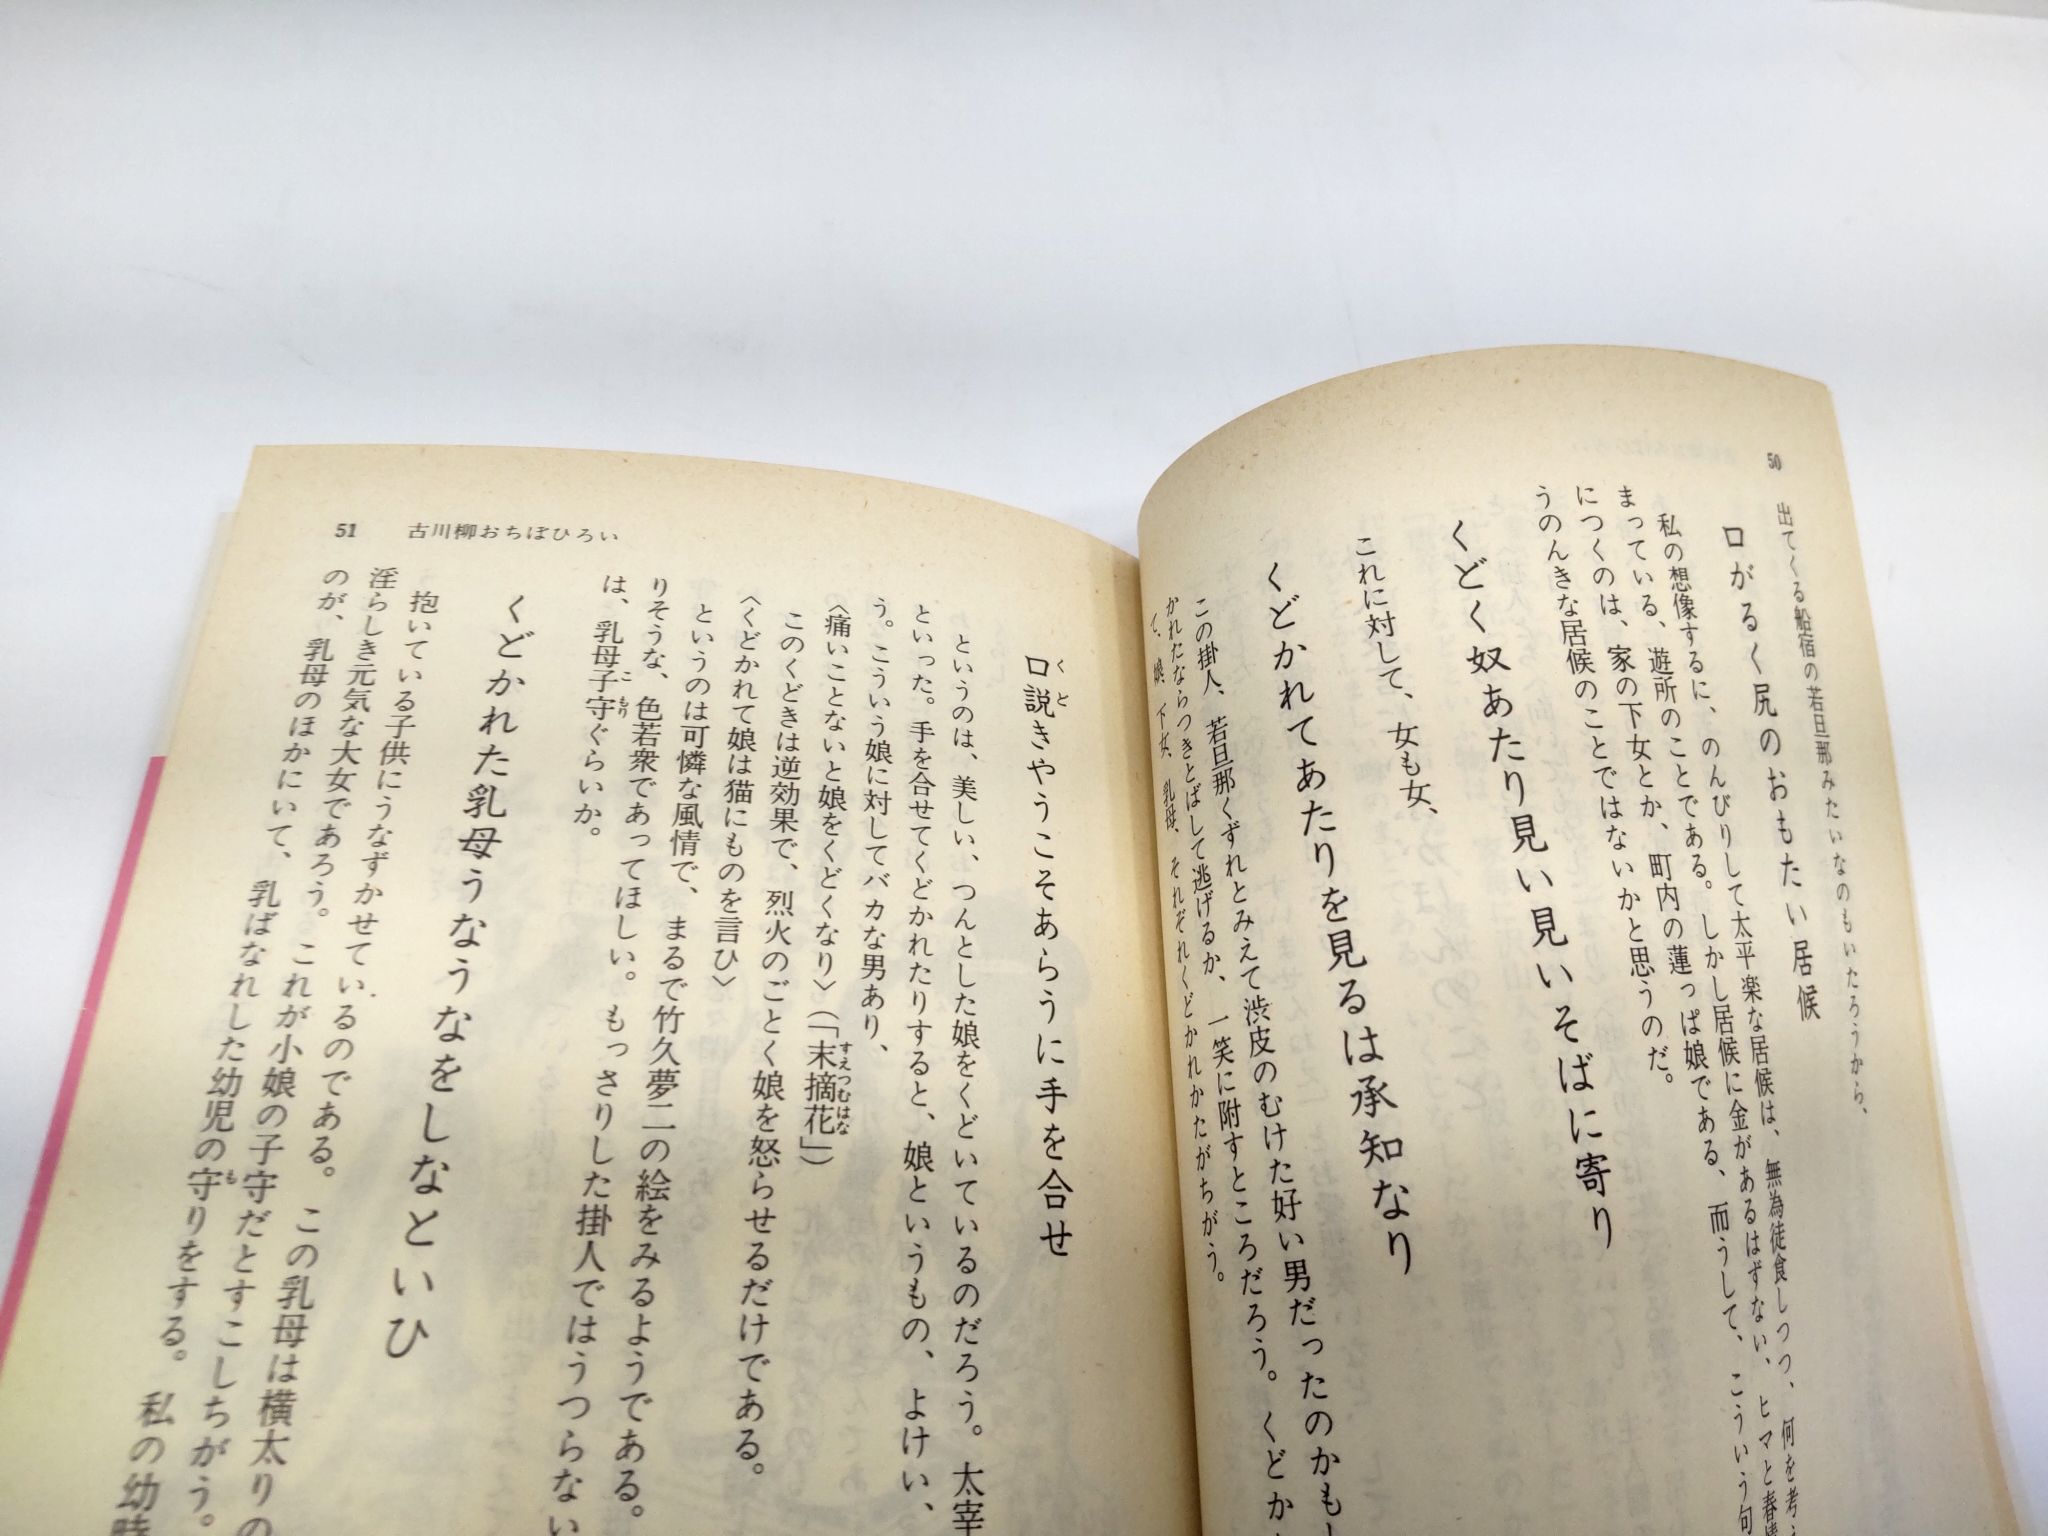 50
出てくる船宿の若旦那みたいなのもいたろうから、
口がるく尻のおもたい居候
私の想像するに、のんびりして太平楽な居候は、無為徒食しつつ、何を考え
まっている、遊所のことである。しかし居候に金があるはずない、ヒマと春情
につくのは、家の下女とか、町内の蓮っぱ娘である、而うして、こういう句
うのんきな居候のことではないかと思うのだ。
くどく奴あたり見い見いそばに寄り
これに対して、女も女、
くどかれてあたりを見るは承知なり
この掛人、若旦那くずれとみえて渋皮のむけた好い男だったのかもし
かれたならつきとばして逃げるか、一笑に附すところだろう。くどか
て、娘、下女、乳母、それぞれくどかれかたがちがう。
51 古川柳おちぼひろい
口説きやうこそあらうに手を合せ
くど
というのは、美しい、つんとした娘をくどいているのだろう。太宰
といった。手を合せてくどかれたりすると、娘というもの、よけい、
う。こういう娘に対してバカな男あり、
〈痛いことないと娘をくどくなり〉(「末摘花」)
すえつむはな
このくどきは逆効果で、烈火のごとく娘を怒らせるだけである。
〈くどかれて娘は猫にものを言ひ〉
というのは可憐な風情で、まるで竹久夢二の絵をみるようである。
りそうな、色若衆であってほしい。もっさりした掛人ではうつらない
は、乳母子守ぐらいか。
こもり
くどかれた乳母うなうなをしなといひ
抱いている子供にうなずかせているのである。この乳母は横太りの
淫らしき元気な大女であろう。これが小娘の子守だとすこしちがう。
のが、乳母のほかにいて、乳ばなれした幼児の守りをする。私の幼時
も